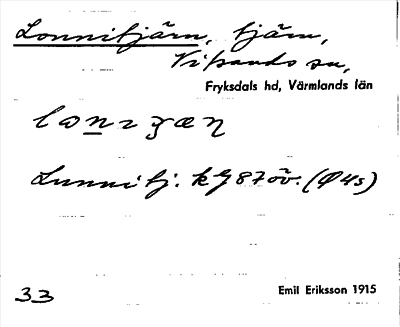 Lonnitjärn, tjärn,
Vitsands sn,
Fryksdals hd, Värmlands län
Lunnitj. kg 87 öv. (Ø4s)
33
Emil Eriksson 1915